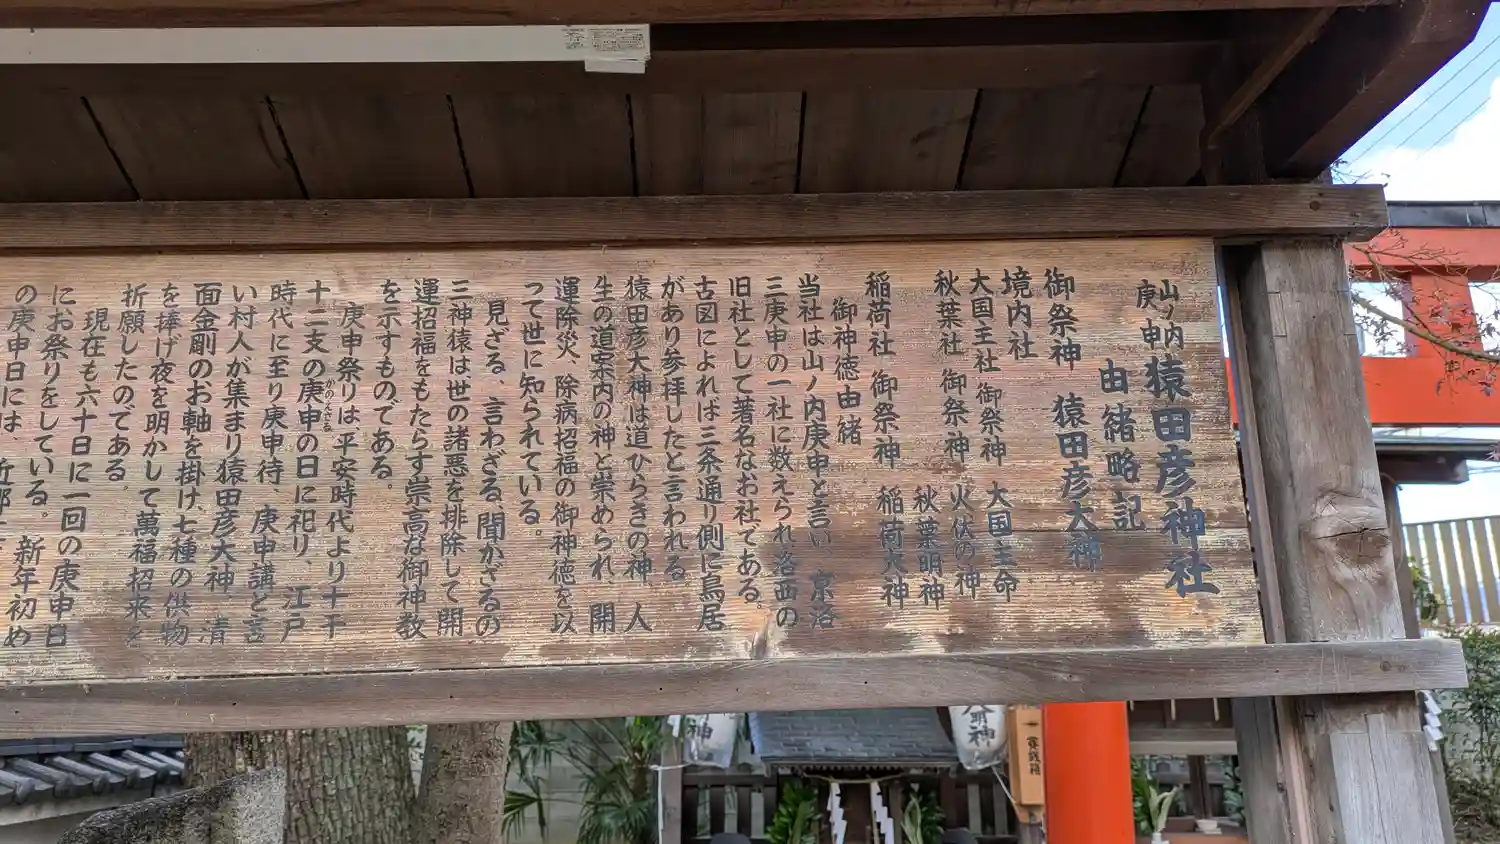 山ノ内
庚申 猿田彦神社
由緒略記
御祭神 猿田彦大神
境内社
大国主社 御祭神 大国主命
秋葉社 御祭神 火伏の神
秋葉明神
稲荷社 御祭神 稲荷大神
御神徳由緒
当社は山ノ内庚申と言い 京洛
三庚申の一社に数えられ洛西の
旧社として著名なお社である。
古図によれば三条通り側に鳥居
があり参拝したと言われる
猿田彦大神は道ひらきの神、人
生の道案内の神と崇められ、開
運除災、除病招福の御神徳を以
って世に知られている。
見ざる、言わざる、聞かざるの
三神猿は世の諸悪を排除して開
運招福をもたらす崇高な御神教
を示すものである。
庚申祭りは平安時代より十干
十二支の庚申の日に祀り、江戸
かのえさる
時代に至り庚申待、庚申講と言
い村人が集まり猿田彦大神 清
面金剛のお軸を掛け、七種の供物
を捧げ夜を明かして萬福招来を
祈願したのである。
現在も六十日に一回の庚申日
にお祭りをしている。新年初め
の庚申日には、
明神
神
賽銭箱